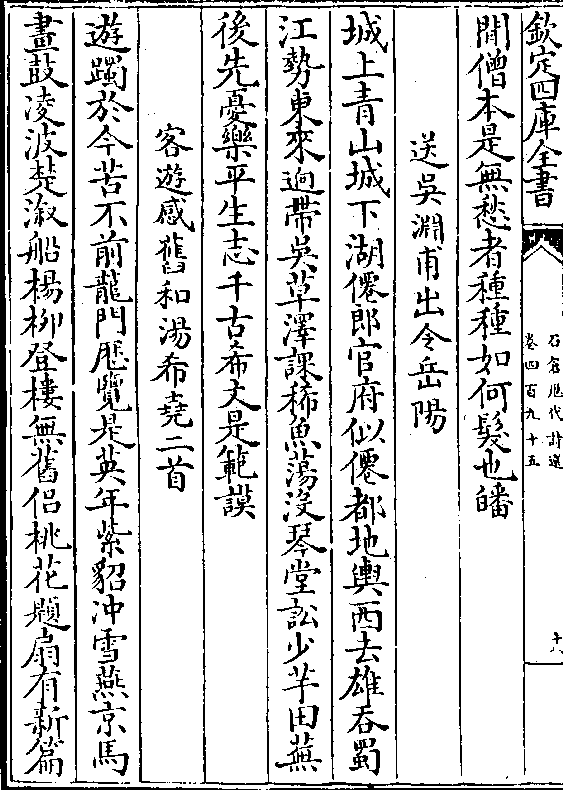 欽定四庫全書
石倉歷代詩選
卷四百九十五
十八
閒僧本是無愁者種種如何髮也皤
送吳淵甫出令岳陽
城上青山城下湖僊郎官府似僊都地輿西去雄吞蜀
江勢東來逈帶吳草澤課稀魚蕩没琴堂訟少芋田蕪
後先憂樂平生志千古希文是範謨
客遊感舊和湯希堯二首
遊躅於今苦不前龍門歷覽是英年紫貂沖雪燕京馬
畫鼓凌波楚溆船楊柳登樓無舊侣桃花題扇有新篇